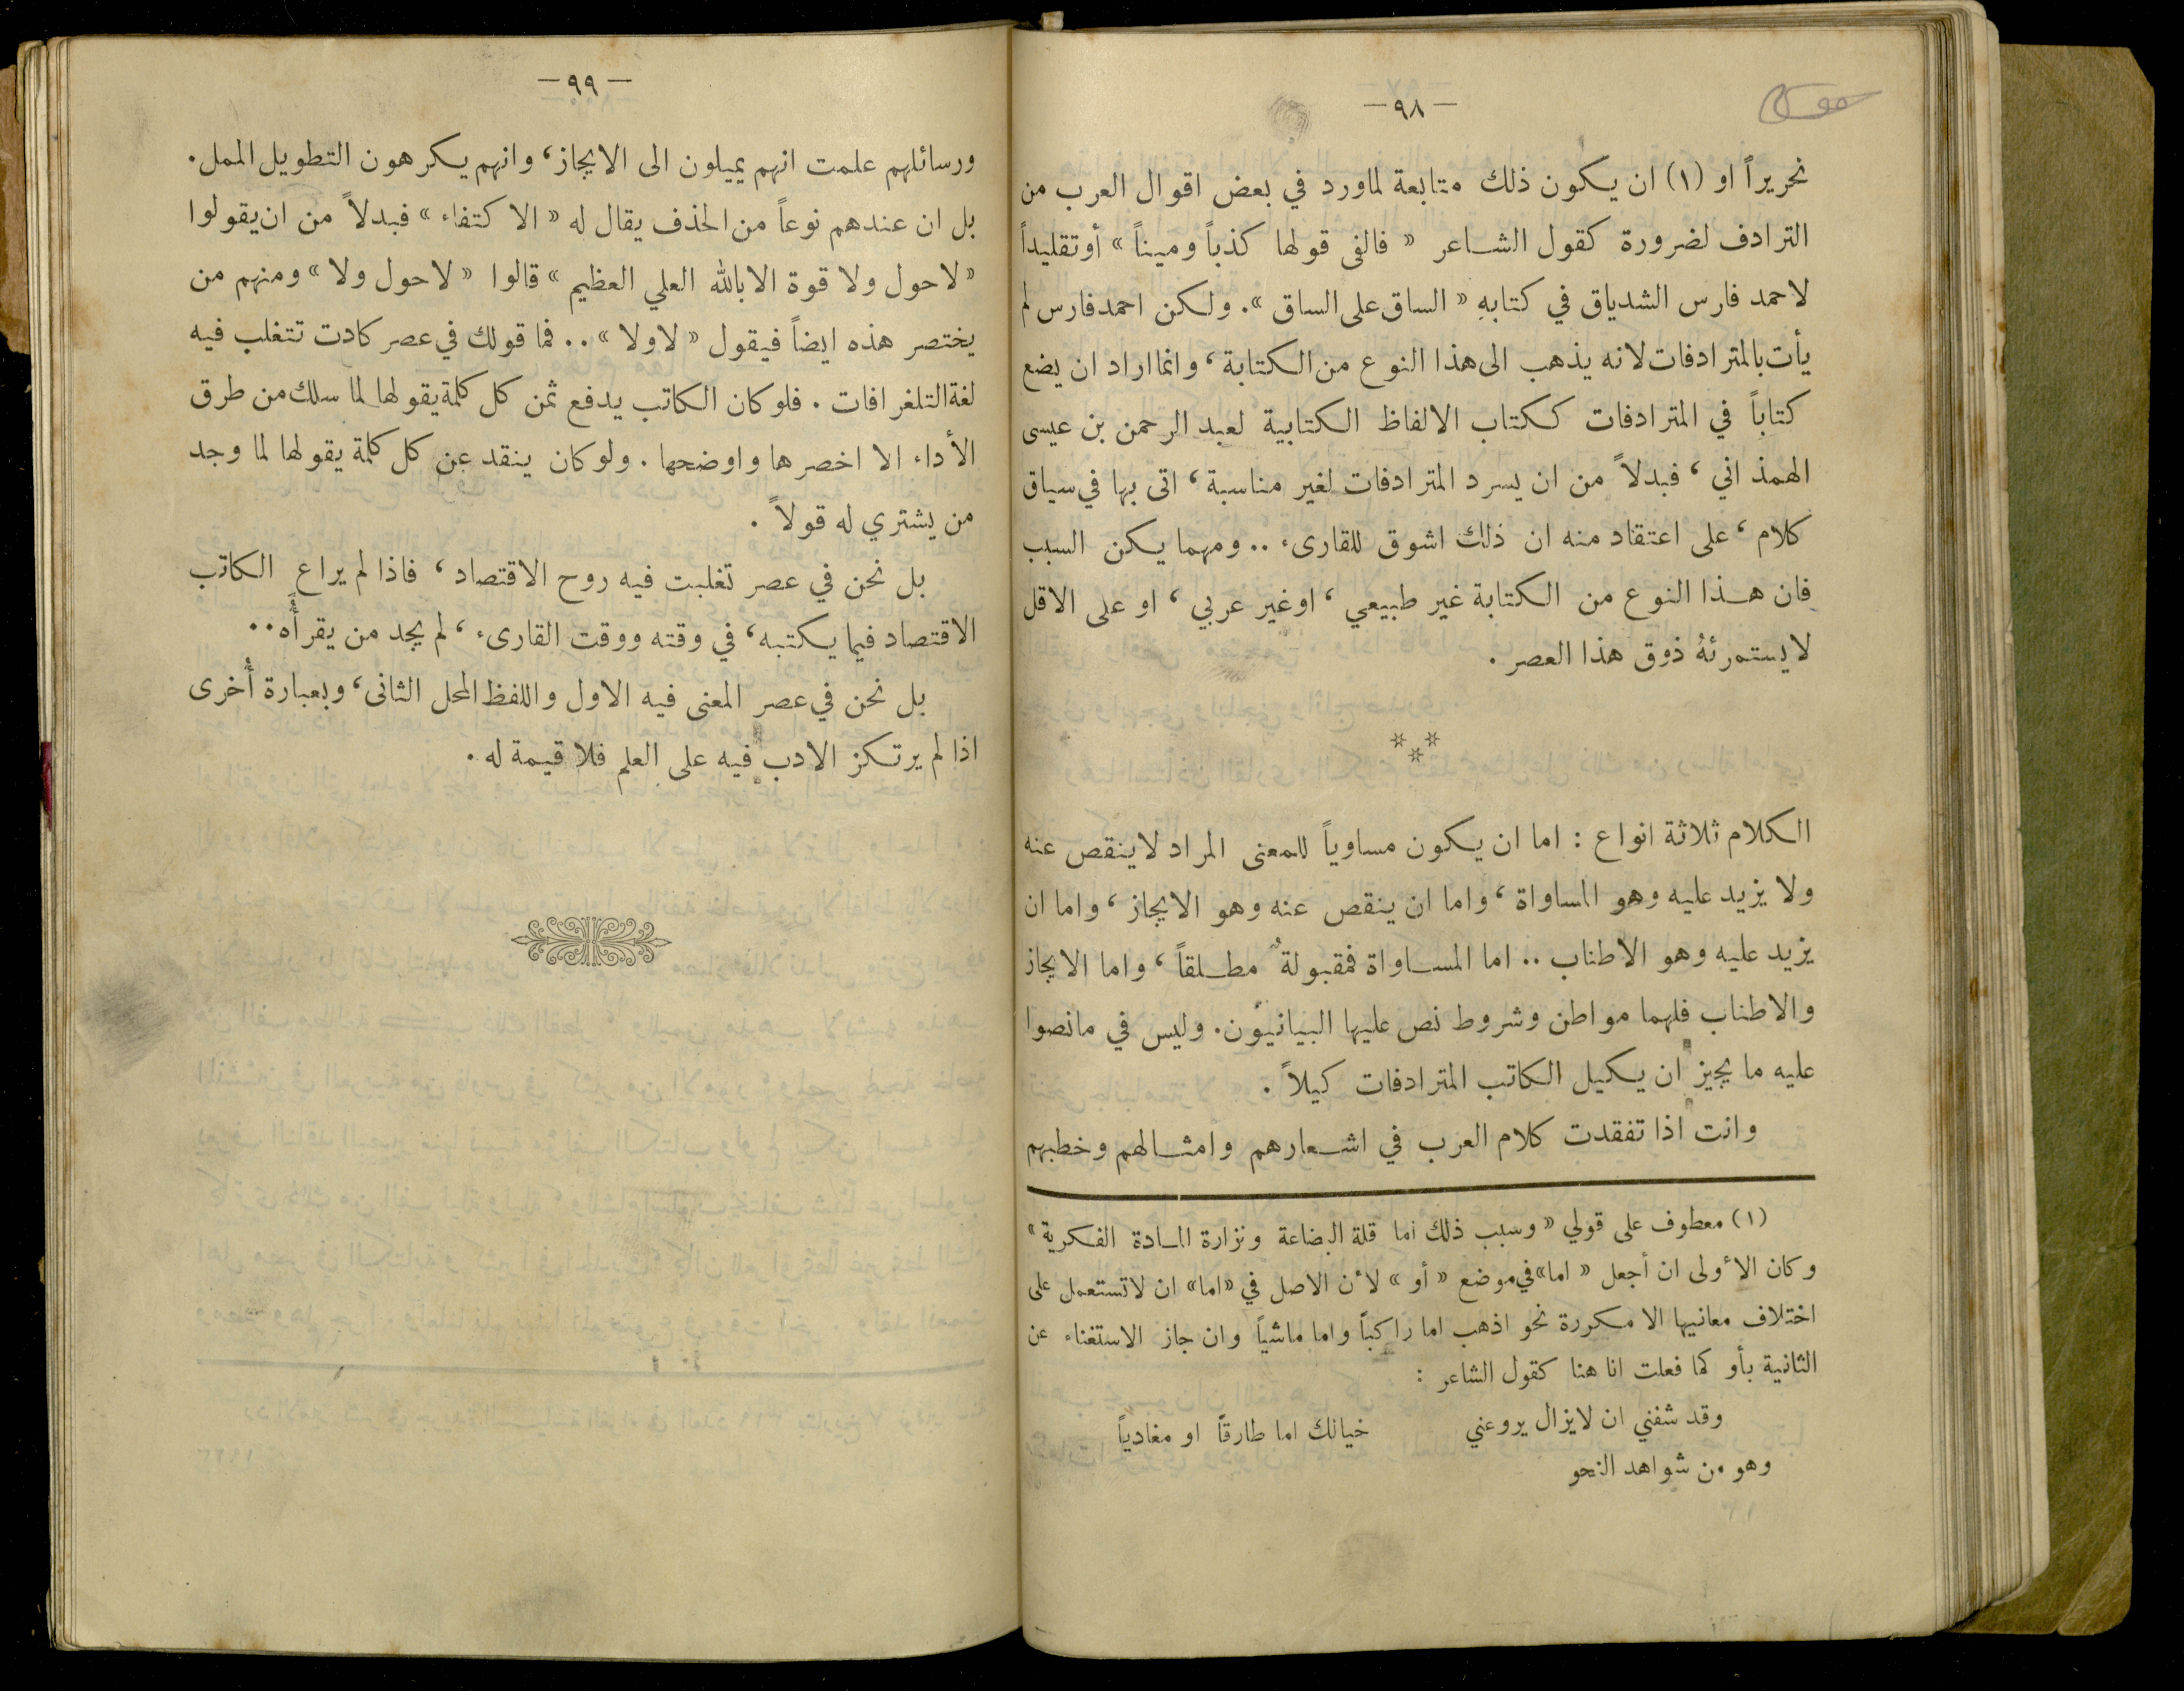 — ٩٨ —
نحريراً او (١) ان يكون ذلك متابعة لما ورد في بعض اقوال العرب من
الترادف لضرورة كقول الشاعر « فالفى قولها كذباً وميناً » أو تقليداً
لاحمد فارس الشدياق في كتابهِ « الساق على الساق ». ولكن احمد فارس لم
يأت بالمترادفات لانه يذهب الى هذا النوع من الكتابة ، وانما اراد ان يضع
كتاباً في المترادفات ككتاب الالفاظ الكتابية لعبد الرحمن بن عيسى
الهمذاني ، فبدلاً من ان يسرد المترادفات لغير مناسبة ، اتى بها في سياق
كلام ، على اعتقاد منه ان ذلك اشوق للقارىء .. ومهما يكن السبب
فان هذا النوع من الكتابة غير طبيعي ، او غير عربي ، او على الاقل
لا يستمرئهُ ذوق هذا العصر .
***
الكلام ثلاثة انواع : اما ان يكون مساوياً للمعنى المراد لا ينقص عنه
ولا يزيد عليه وهو المساواة ، واما ان ينقص عنه وهو الايجاز ، واما ان
يزيد عليه وهو الاطناب .. اما المساواة فمقبولةٌ مطلقاً ، واما الايجاز
والاطناب فلهما مواطن وشروط نص عليها البيانيون. وليس في ما نصوا
عليه ما يجيز ان يكيل الكاتب المترادفات كيلاً .
وانت اذا تفقدت كلام العرب في اشعارهم وامثالهم وخطبهم
(١) معطوف على قولي « وسبب ذلك اما قلة البضاعة ونزارة المادة الفكرية »
وكان الأولى ان أجعل « اما » في موضع « أو » لأن الاصل في «اما» ان لا تستعمل على
اختلاف معانيها الا مكررة نحو اذهب اما راكباً واما ماشياً وان جاز الاستغناء عن
الثانية بأو كما فعلت انا هنا كقول الشاعر :
وقد شفني ان لا يزال يروعني خيالك اما طارقاً او مغادياً
وهو من شواهد النحو
— ٩٩ —
ورسائلهم علمت انهم يميلون الى الايجاز ، وانهم يكرهون التطويل الممل.
بل ان عندهم نوعاً من الحذف يقال له « الاكتفاء » فبدلاً من ان يقولوا
« لا حول ولا قوة الا بالله العلي العظيم » قالوا « لا حول ولا » ومنهم من
يختصر هذه ايضاً فيقول « لا ولا » .. فما قولك في عصر كادت تتغلب فيه
لغة التلغرافات . فلو كان الكاتب يدفع ثمن كل كلمة يقولها لما سلك من طرق
الأداء الا اخصرها واوضحها . ولو كان ينقد عن كل كلمة يقولها لما وجد
من يشتري له قولاً .
بل نحن في عصر تغلبت فيه روح الاقتصاد ، فاذا لم يراعِ الكاتب
الاقتصاد فيما يكتبه ، في وقته ووقت القارىء ، لم يجد من يقرأُه ..
بل نحن في عصر المعنى فيه الاول واللفظ المحل الثانى ، وبعبارة أُخرى
اذا لم يرتكز الادب فيه على العلم فلا قيمة له .